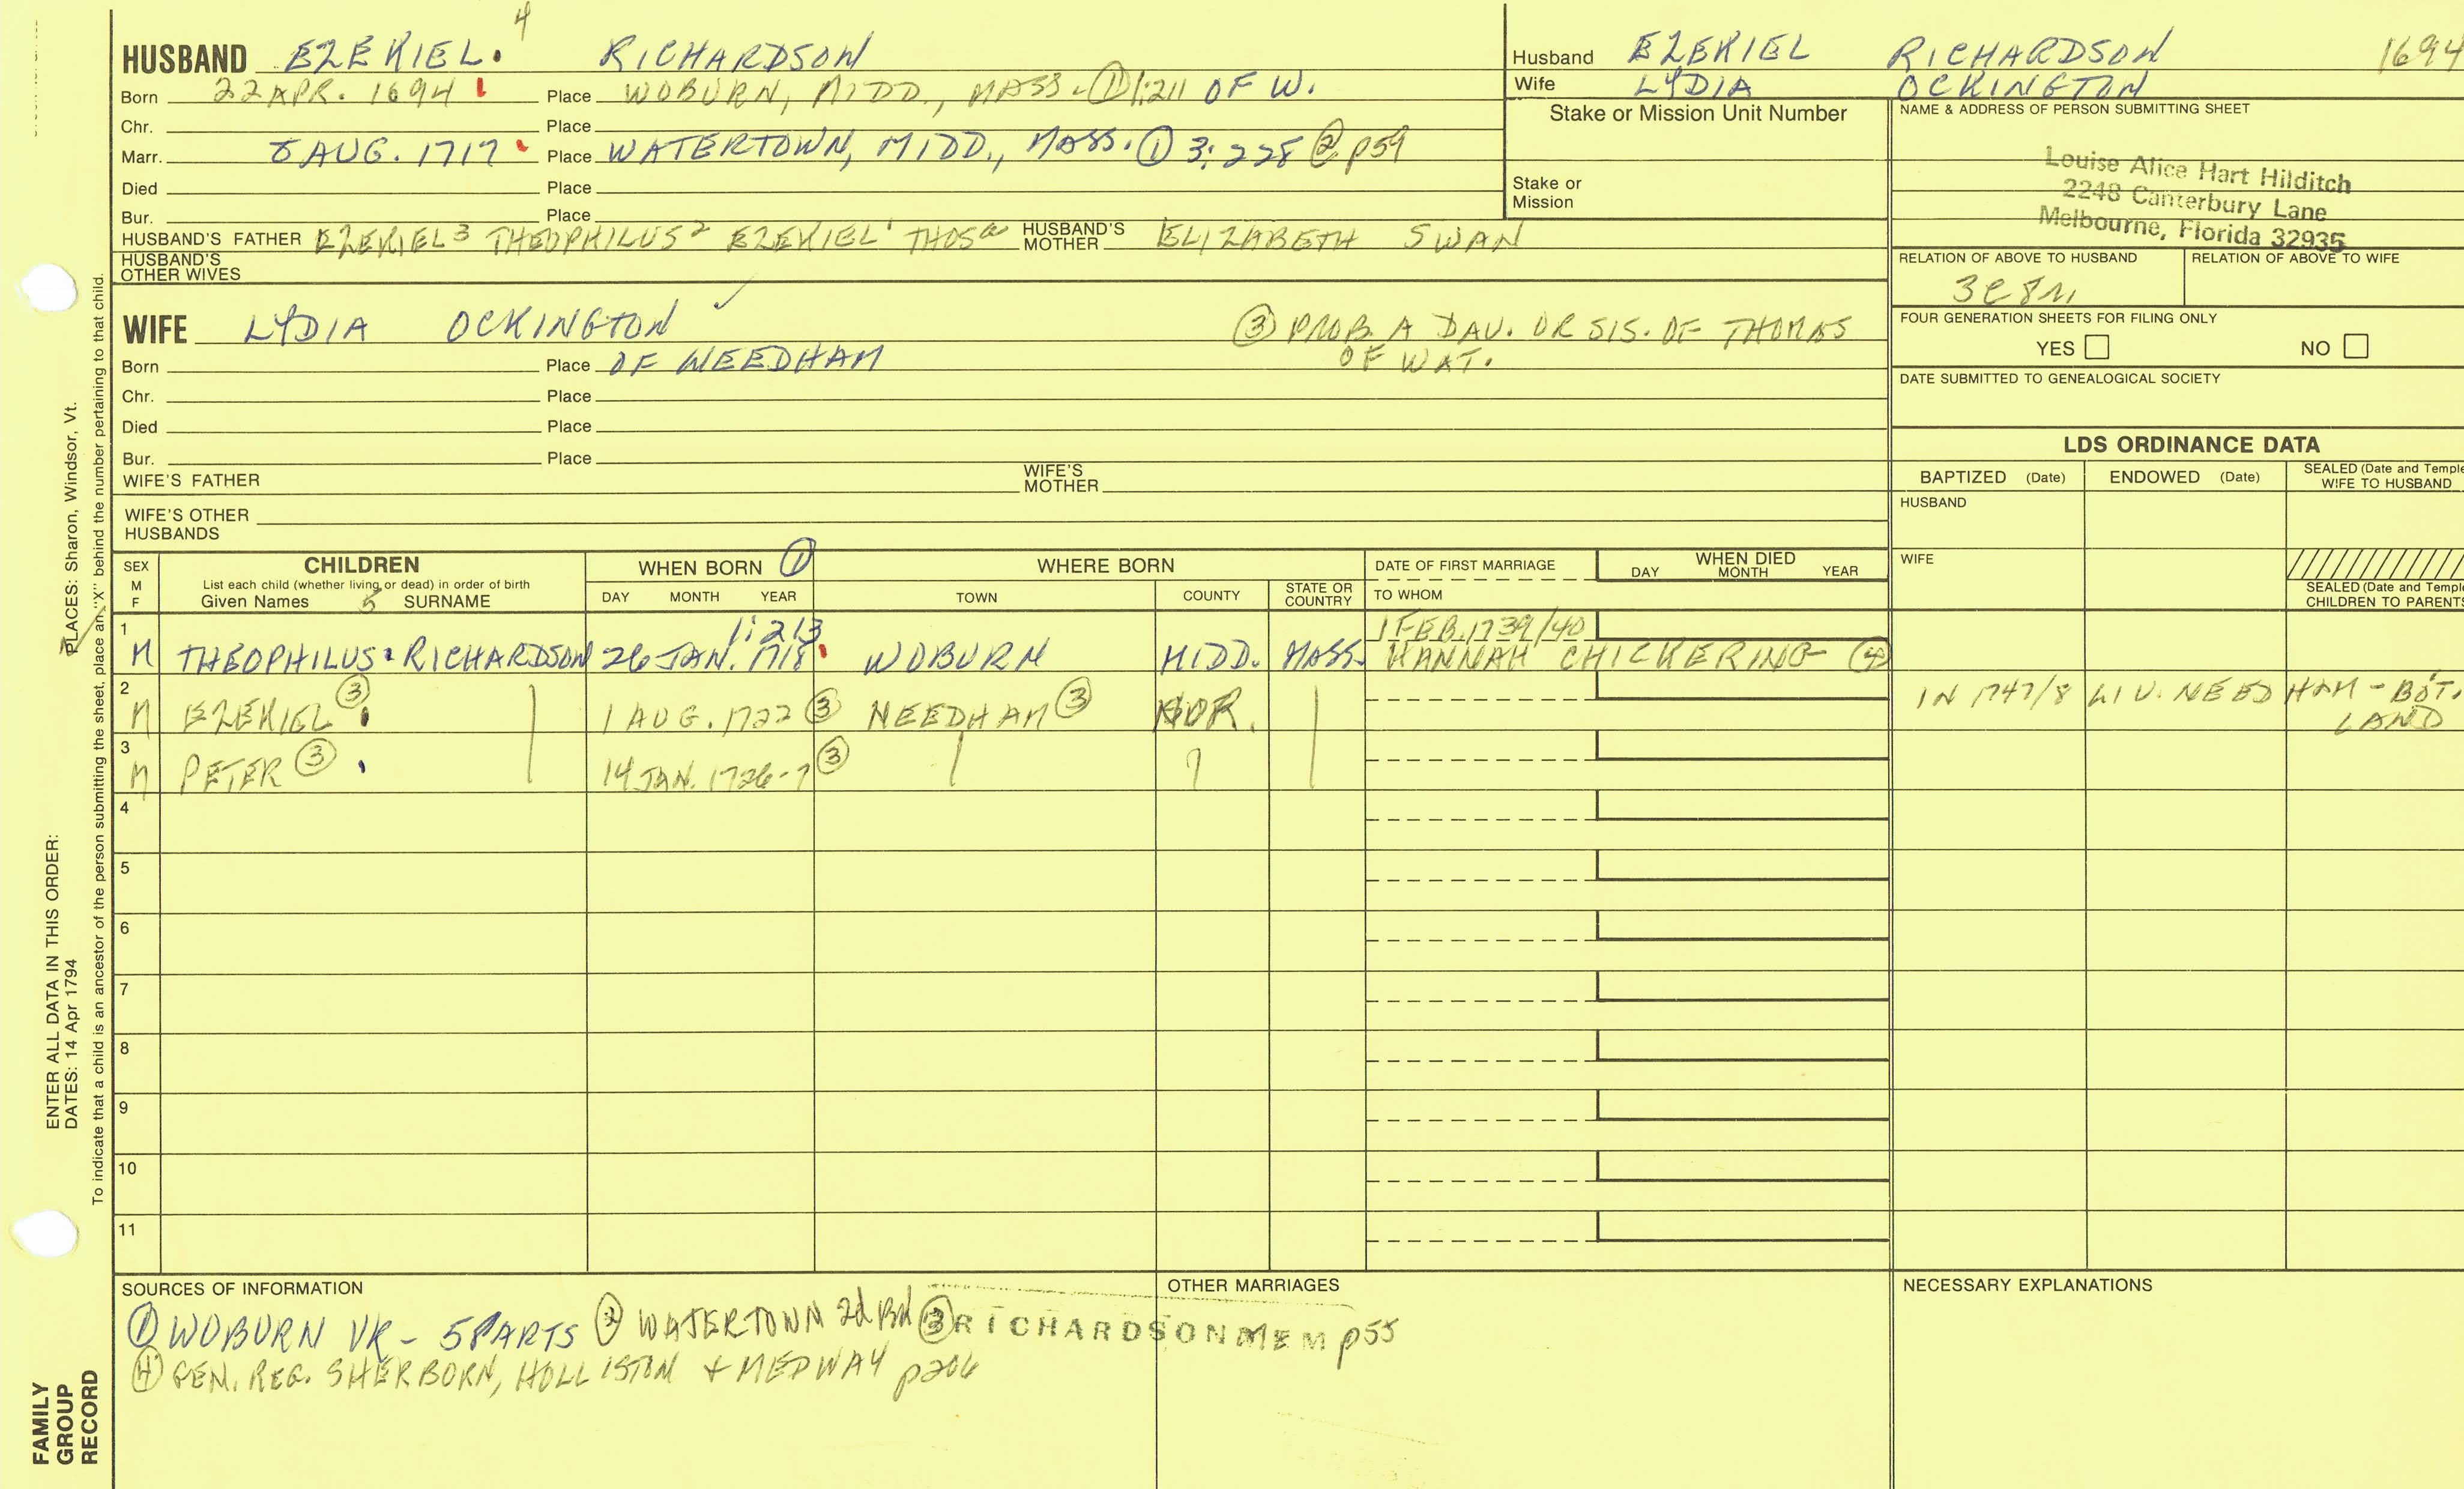 4
HUSBAND EZEKIEL. RICHARDSON
Born 22 APR. 1694 Place WOBURN, MIDD., MASS. ① 1:211 OF W.
Chr. Place
Marr. AUG. 1717 Place WATERTOWN, MIDD., MASS. ① 3:228 ② p59
Died Place
Bur. Place
HUSBAND'S FATHER EZEKIEL³ THEOPHILUS² EZEKIEL¹ THOSᵃ HUSBAND'S MOTHER ELIZABETH SWAN
HUSBAND'S OTHER WIVES
Husband EZEKIEL RICHARDSON 1694
Wife LYDIA OCKINGTON
Stake or Mission Unit Number
Stake or Mission
NAME & ADDRESS OF PERSON SUBMITTING SHEET
Louise Alice Hart Hilditch
2248 Canterbury Lane
Melbourne, Florida 32935
RELATION OF ABOVE TO HUSBAND RELATION OF ABOVE TO WIFE
3C8R
FOUR GENERATION SHEETS FOR FILING ONLY
YES NO
DATE SUBMITTED TO GENEALOGICAL SOCIETY
WIFE LYDIA OCKINGTON ✓ ③ PROB. A DAV. OR SIS. OF THOMAS
OF WAT.
Born Place OF NEEDHAM
Chr. Place
Died Place
Bur. Place
WIFE'S FATHER WIFE'S MOTHER
WIFE'S OTHER HUSBANDS
LDS ORDINANCE DATA
BAPTIZED (Date) ENDOWED (Date) SEALED (Date and Temple
WIFE TO HUSBAND
HUSBAND
WIFE
SEALED (Date and Temple
CHILDREN TO PARENTS
SEX M F
CHILDREN
List each child (whether living or dead) in order of birth
Given Names 5 SURNAME
WHEN BORN ①
DAY MONTH YEAR
WHERE BORN
TOWN COUNTY STATE OR COUNTRY
DATE OF FIRST MARRIAGE
TO WHOM
WHEN DIED
DAY MONTH YEAR
1 1:213 1 FEB. 1739/40
M THEOPHILUS RICHARDSON 26 JAN. 1718 WOBURN MIDD. MASS. HANNAH CHICKERING ④
2 M EZEKIEL ③ 1 AUG. 1722 ③ NEEDHAM ③ NOR. IN 1747/8 LIV. NEEDHAM - BOT.
LAND
3 M PETER ③ 14 JAN. 1726-7 ③
4
5
6
7
8
9
10
11
SOURCES OF INFORMATION
① WOBURN VR - 5 PARTS ② WATERTOWN 2d Bk ③ RICHARDSON MEM p55
④ GEN. REG. SHERBORN, HOLLISTON & MEDWAY p206
OTHER MARRIAGES
NECESSARY EXPLANATIONS
ENTER ALL DATA IN THIS ORDER:
DATES: 14 Apr 1794
PLACES: Sharon, Windsor, Vt.
To indicate that a child is an ancestor of the person submitting the sheet, place an "X" behind the number pertaining to that child.
FAMILY
GROUP
RECORD